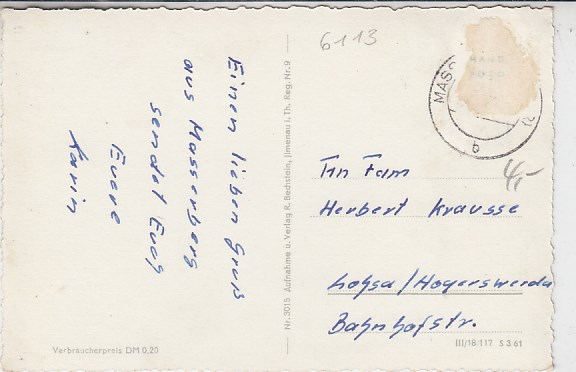 Einen lieben Gruß
aus Masserberg
sendet Euch
Euere
Karin
Verbraucherpreis DM 0,20
Nr. 3015 Aufnahme u. Verlag R. Bechstein, Jlmenau i. Th. Reg.-Nr. 9
6113
MASS
b
4,-
An Fam
Herbert Krausse
Lohsa/Hoyerswerda
Bahnhofstr.
III/18/117 S 3 61